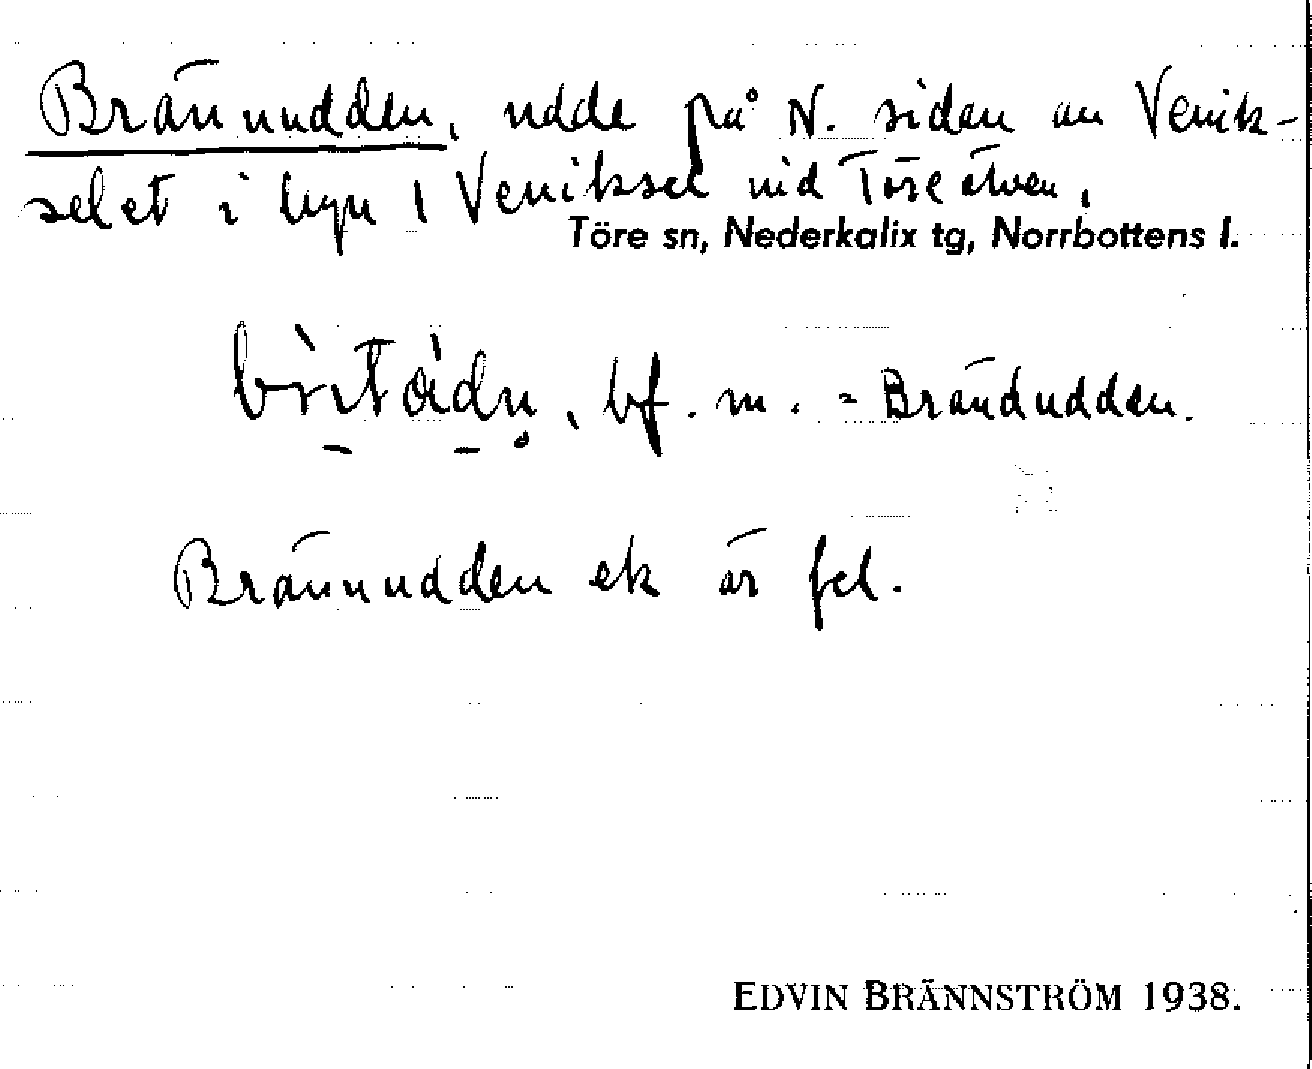 Brännudden, udde på N. sidan av Venik-
selet i byn 1 Veniksel vid Töre älven,
Töre sn, Nederkalix tg, Norrbottens l.
bf. m. = Brändudden.
Brännudden ek är fel.
EDVIN BRÄNNSTRÖM 1938.